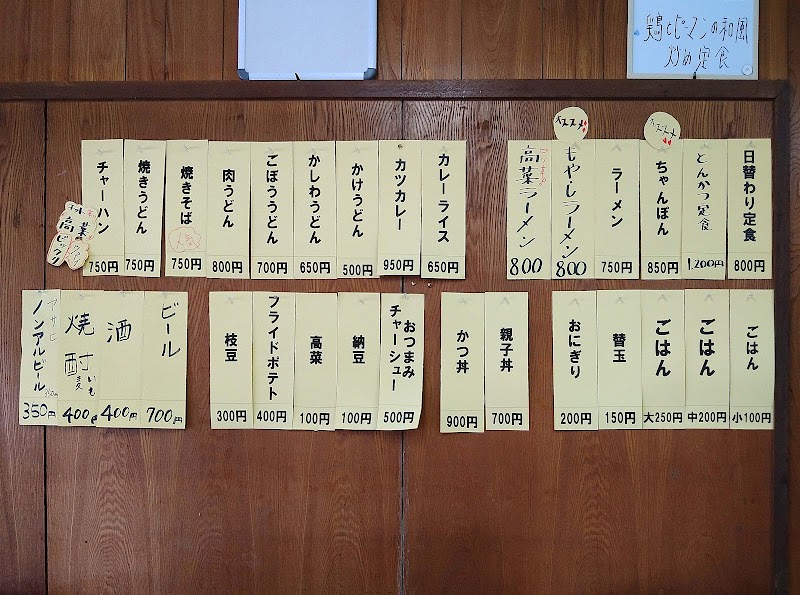 鶏とピーマンの和風
炒め定食
日替わり定食
800円
とんかつ定食
1,200円
オススメ
ちゃんぽん
850円
ラーメン
750円
オススメ
もやしラーメン
800
高菜ラーメン
800
カレーライス
650円
カツカレー
950円
かけうどん
500円
かしわうどん
650円
ごぼううどん
700円
肉うどん
800円
焼きそば
人気
750円
焼きうどん
750円
チャーハン
750円
高菜
ピック
ごはん
小100円
ごはん
中200円
ごはん
大250円
替玉
150円
おにぎり
200円
親子丼
700円
かつ丼
900円
おつまみ
チャーシュー
500円
納豆
100円
高菜
100円
フライドポテト
400円
枝豆
300円
ビール
700円
酒
400円
焼酎
いも
麦
400
アサヒ
ノンアルビール
350円